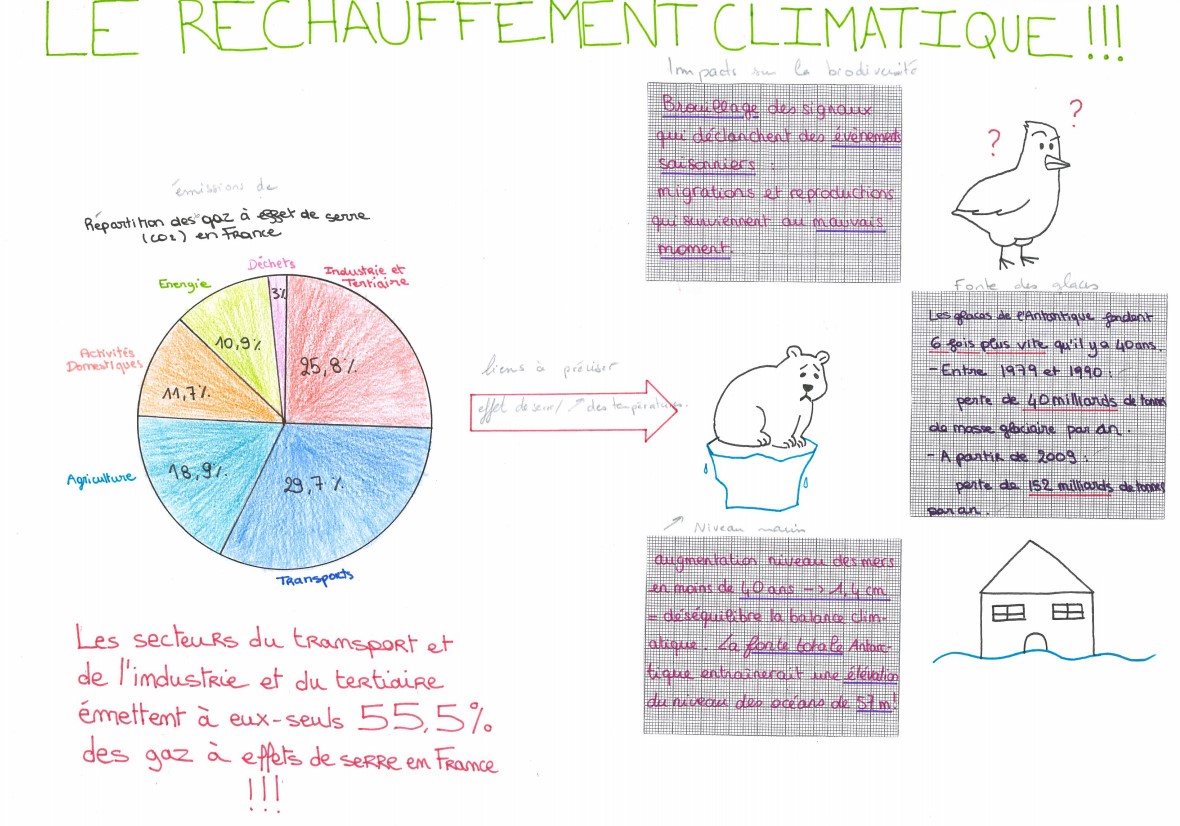 LE RECHAUFFEMENT CLIMATIQUE !!!
émissions de
Répartition des gaz à effet de serre
(CO2) en France
Déchets
3%
Industrie et
Tertiaire
25,8%
Energie
10,9%
Activités
Domestiques
11,7%
Agriculture
18,9%
29,7%
Transports
Les secteurs du transport et
de l'industrie et du tertiaire
émettent à eux-seuls 55,5%
des gaz à effets de serre en France
!!!
liens à préciser
effet de serre/ ↗ des températures.
Impacts sur la biodiversité
Brouillage des signaux
qui déclanchent des évènements
saisonniers :
migrations et reproductions
qui surviennent au mauvais
moment.
? ?
Fonte des glaces
Les glaces de l'Antarctique fondent
6 fois plus vite qu'il y a 40 ans.
- Entre 1979 et 1990 :
perte de 40 milliards de tonnes
de masse glaciaire par an.
- A partir de 2009 :
perte de 152 milliards de tonnes
par an.
↗ Niveau marin
augmentation niveau des mers
en moins de 40 ans -> 1,4 cm
= déséquilibre la balance clim-
atique. La fonte totale Antarc-
tique entraînerait une élévation
du niveau des océans de 57 m!